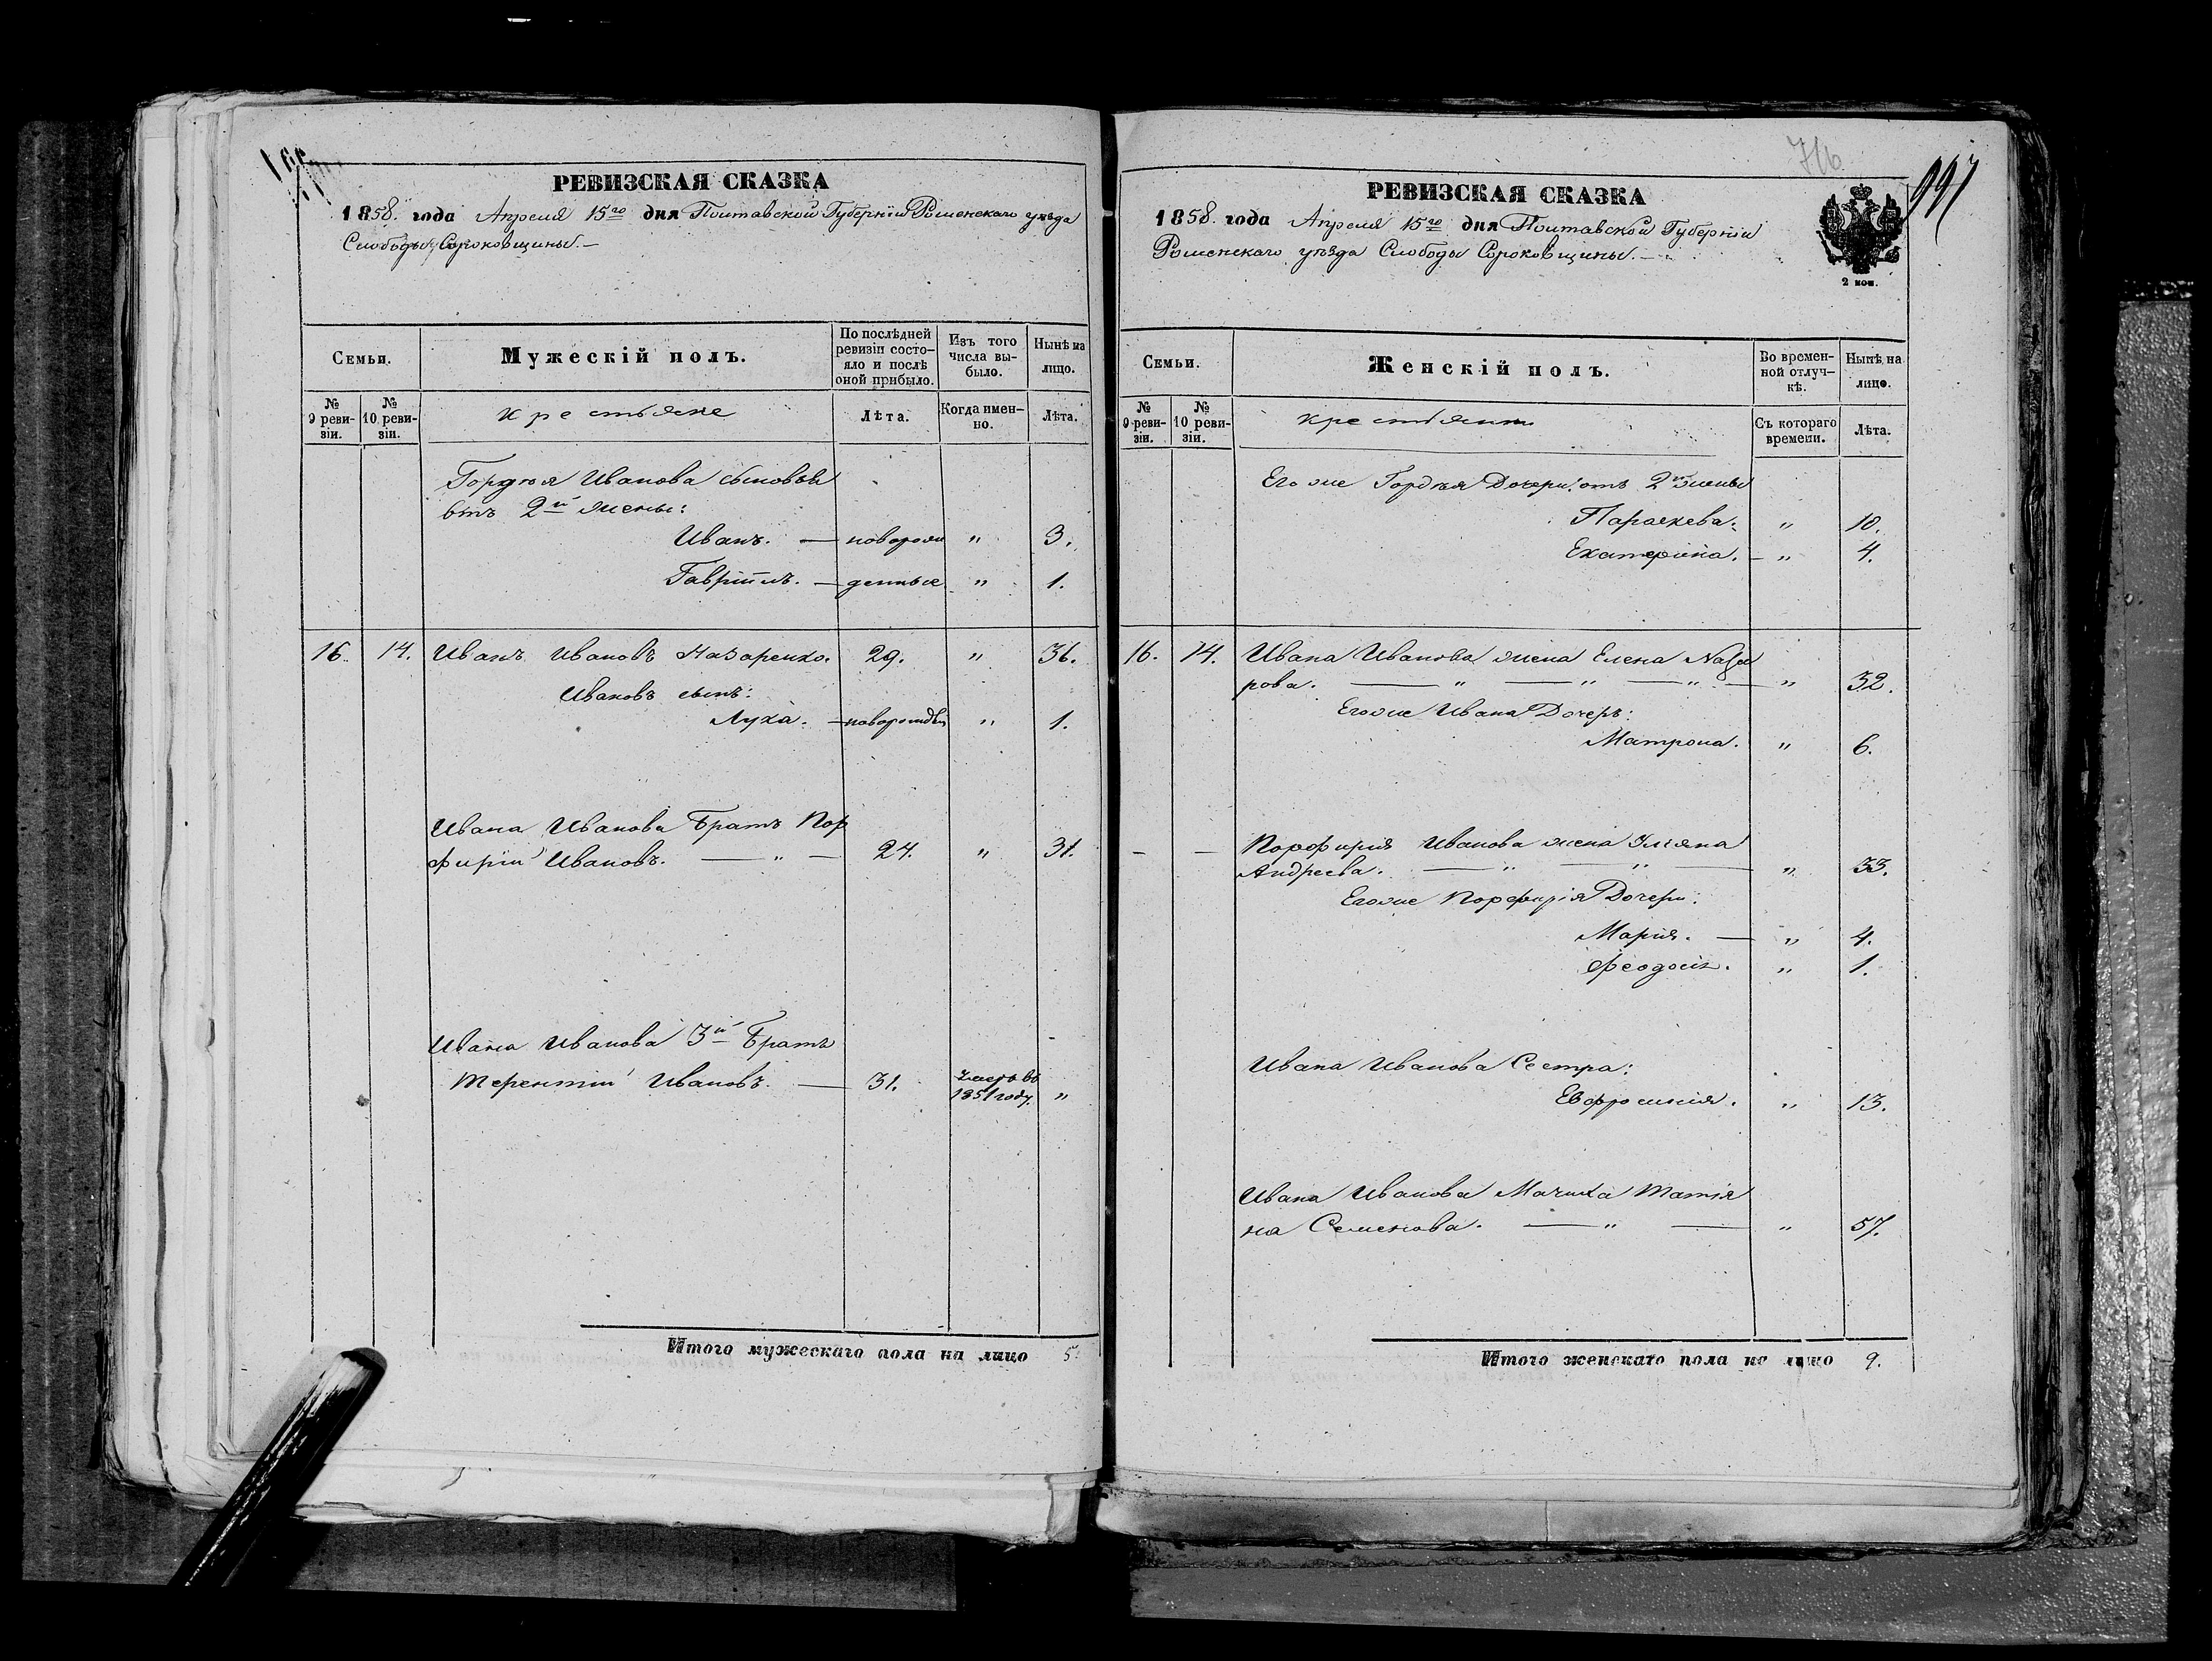 РЕВИЗСКАЯ СКАЗКА
1858. года Апреля 15го дня Полтавской Губерніи Роменскаго уѣзда
Слободы Сороковщины.—
Семьи.
Мужескій полъ.
По послѣдней ревизіи состо-
яло и послѣ оной прибыло.
Изъ того числа вы-
было.
Нынѣ на лицо.
№ 9 реви-
зіи.
№ 10 реви-
зіи.
Крестьяне
Лѣта.
Когда имен-
но.
Лѣта.
Гордѣя Иванова сыновья
отъ 2й жены:
Иванъ. — новорож „ 3.
Гавріилъ. — денные „ 1.
16. 14. Иванъ Ивановъ Назаренко. 29. „ 36.
Ивановъ сынъ:
Лука. — новорожден „ 1.
Ивана Иванова Братъ Пор
фирій Ивановъ. — „ — 24. „ 31.
Ивана Иванова 3й Братъ
Терентій Ивановъ. — 31. Умеръ въ
1851 году. „
Итого мужескаго пола на лицо 5.
716
РЕВИЗСКАЯ СКАЗКА
1858. года Апреля 15го дня Полтавской Губерніи
Роменскаго уѣзда Слободы Сороковщины.—
2 коп.
Семьи.
Женскій полъ.
Во времен-
ной отлуч-
кѣ.
Нынѣ на лицо.
№ 9 реви-
зіи.
№ 10 реви-
зіи.
Крестьянки
Съ котораго времени.
Лѣта.
Его же Гордѣя Дочери отъ 2й жены
Параскева. „ 10.
Екатерина. — „ 4.
16. 14. Ивана Иванова жена Елена Наза
рова. — „ — „ — „ — „ 32.
Егоже Ивана Дочерь:
Матрона. „ 6.
— — Порфирія Иванова жена Уліяна
Андреева. — „ — „ — „ 33.
Егоже Порфирія Дочери:
Марія. — „ 4.
Феодосія. „ 1.
Ивана Иванова Сестра:
Евфросинія. „ 13.
Ивана Иванова Мачиха Татія
на Семенова. — „ — „ 57.
Итого женскаго пола на лицо 9.